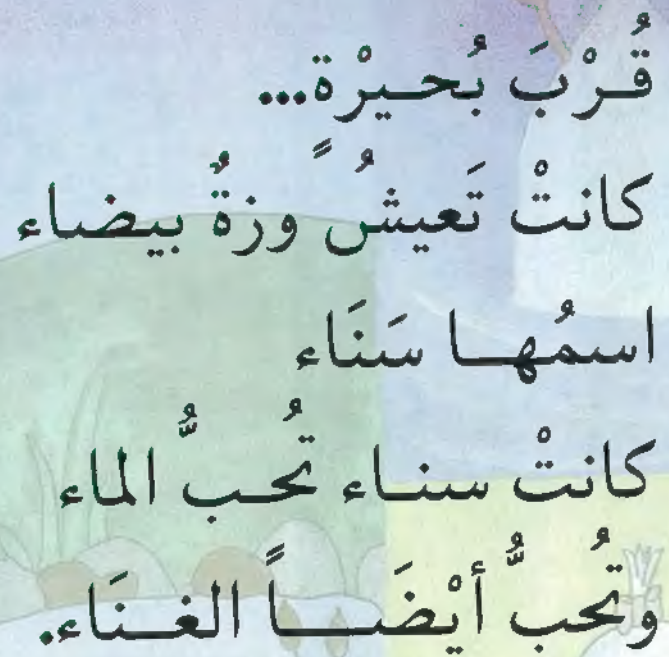 قُرْبَ بُحيرْة...
كانتْ تَعيشُ وزةٌ بيضاء
اسمُها سَنَاء
كانتْ سناء تُحبُّ الماء
وتُحبُّ أيْضَاً الغنَاء.